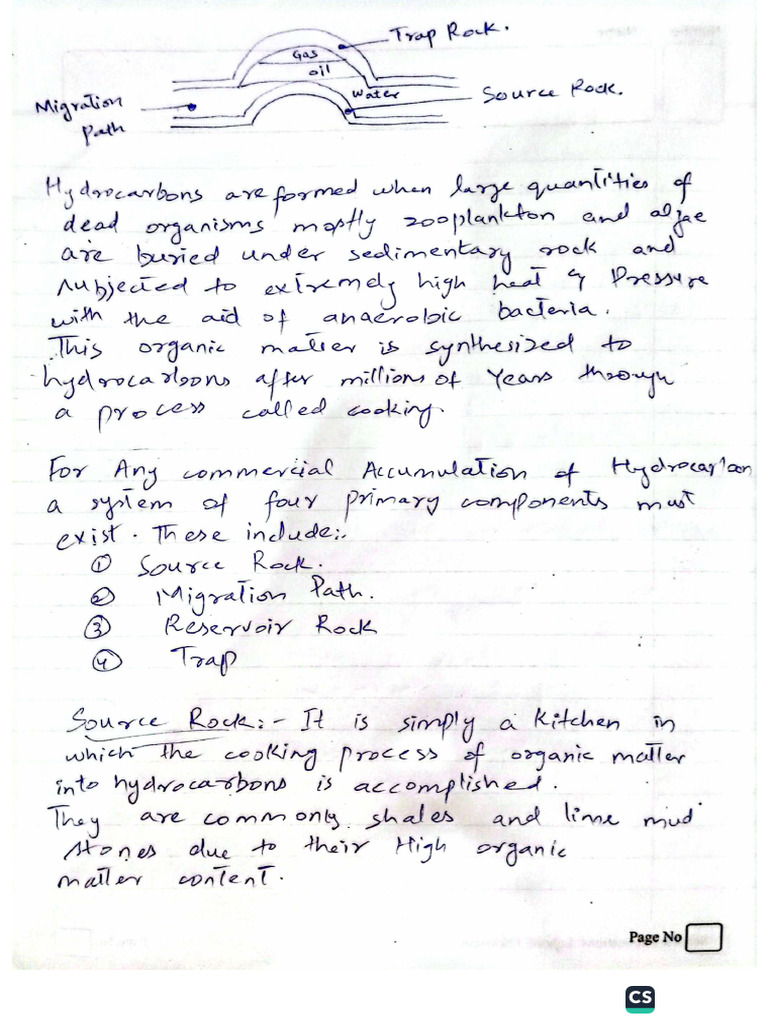 Trap Rock.
Gas
oil
Water
Source Rock.
Migration
Path
Hydrocarbons are formed when large quantities of
dead organisms mostly zooplankton and algae
are buried under sedimentary rock and
subjected to extremely high heat & Pressure
with the aid of anaerobic bacteria.
This organic matter is synthesized to
hydrocarbons after millions of Years through
a process called cooking.
For Any commercial Accumulation of Hydrocarbon
a system of four primary components must
exist. These include:.
① Source Rock.
② Migration Path.
③ Reservoir Rock
④ Trap
Source Rock:- It is simply a kitchen in
which the cooking process of organic matter
into hydrocarbons is accomplished.
They are commonly shales and lime mud
stones due to their High organic
matter content.
Page No
CS